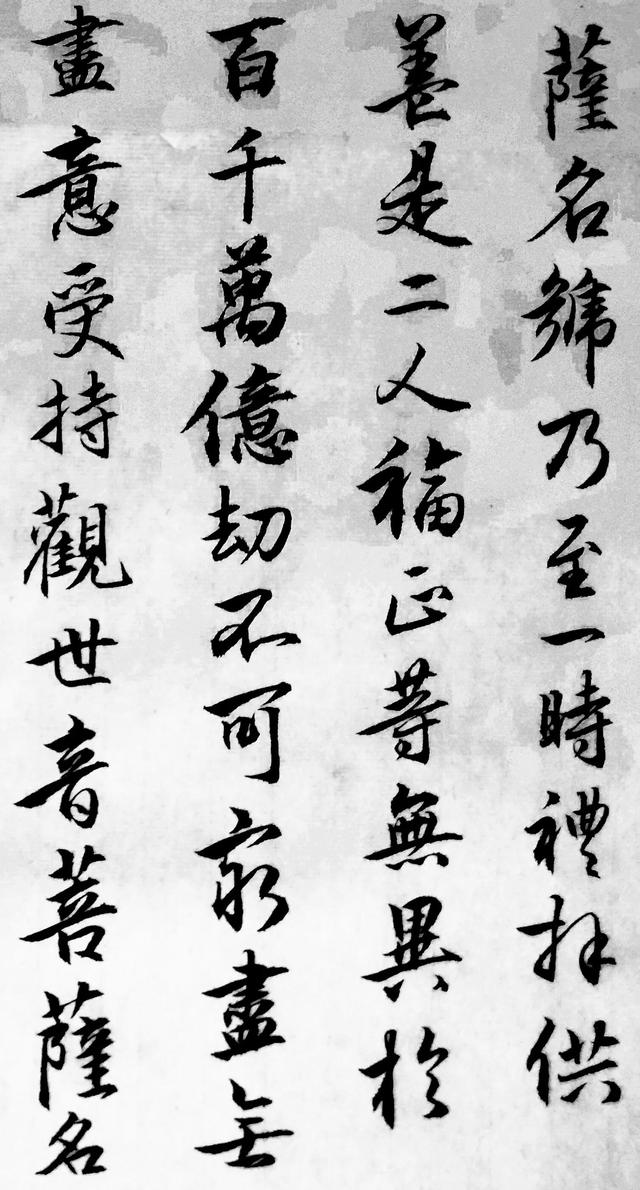 薩名號乃至一時禮拜供
養是二人福正等無異於
百千萬億劫不可窮盡無
盡意受持觀世音菩薩名